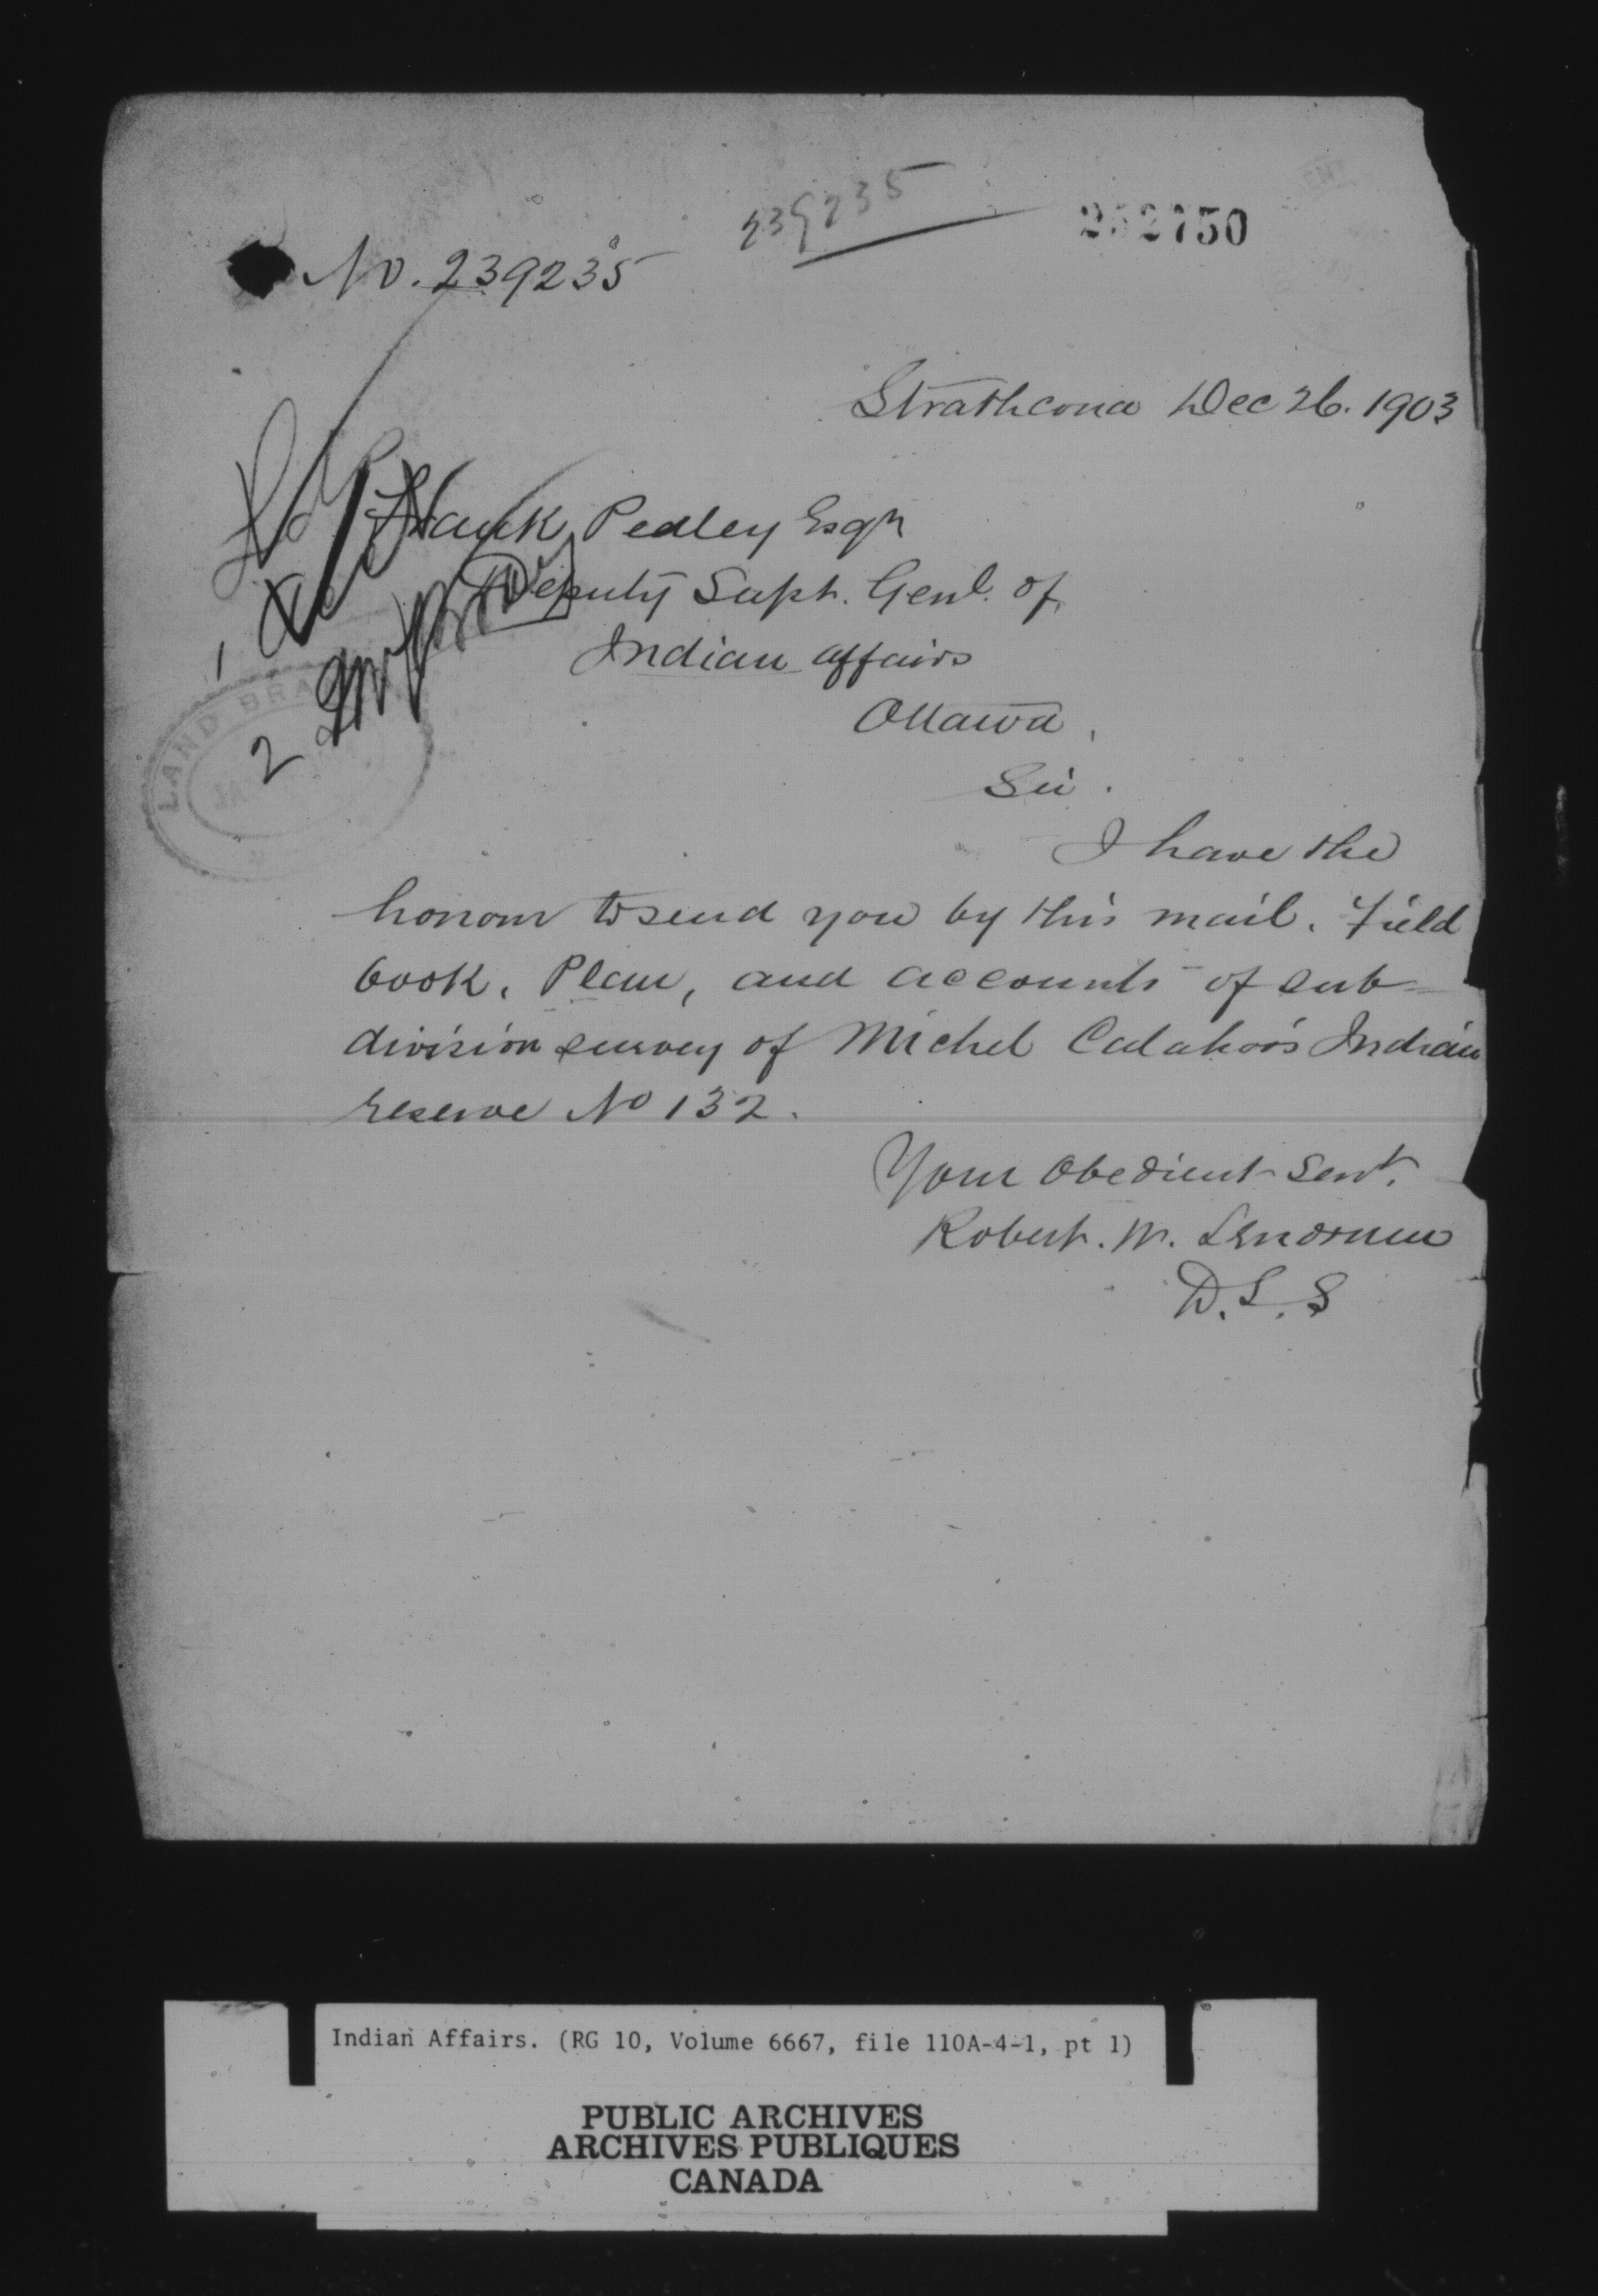 239235
252750
No. 239235
Strathcona Dec 26. 1903
Frank Pedley Esqr
Deputy Supt. Genl. of
Indian Affairs
Ottawa,
Sir.
I have the
honour to send you by this mail. Field
book, Plan, and accounts of sub-
division survey of Michel Calahoo's Indian
reserve No 132.
Your Obedient Servt.
Robert. W. Lendrum
D.L.S
1
2
LAND BRA
JA
Indian Affairs. (RG 10, Volume 6667, file 110A-4-1, pt 1)
PUBLIC ARCHIVES
ARCHIVES PUBLIQUES
CANADA